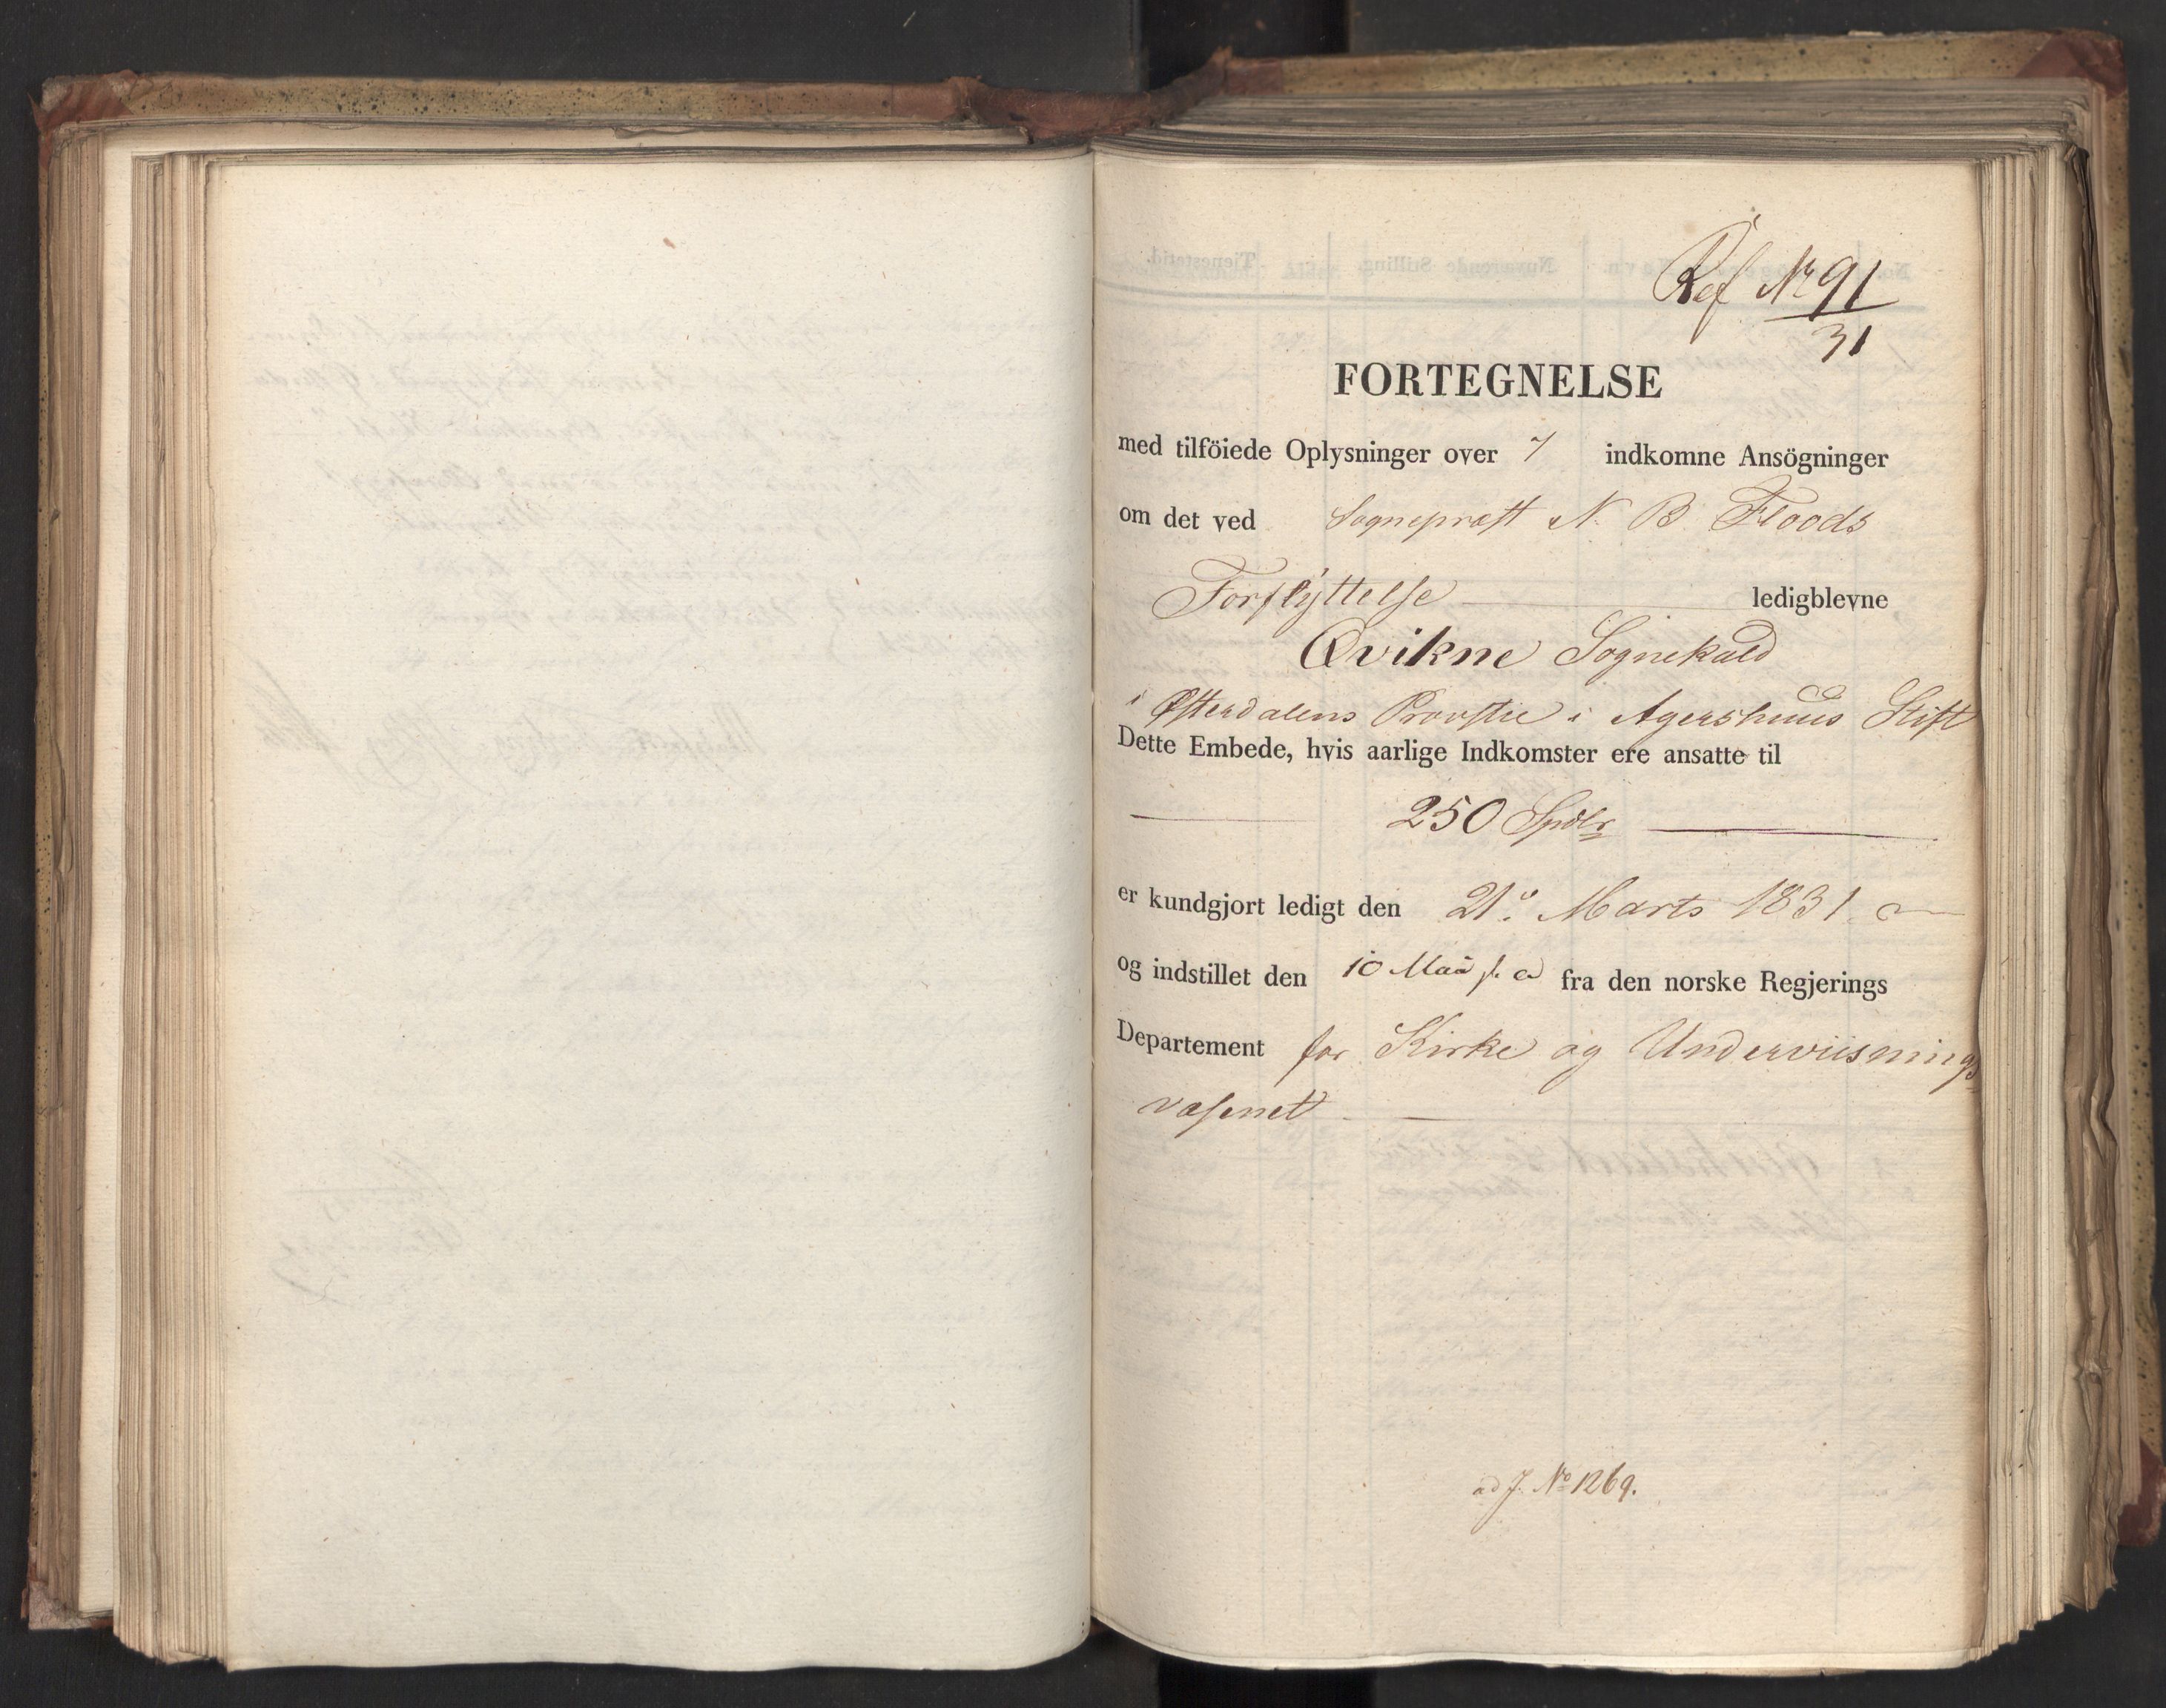 Ref No 91
31
FORTEGNELSE
med tilföiede Oplysninger over 7 indkomne Ansögninger
om det ved Sognepræst N. B. Floods
Forflyttelse ledigblevne
Qvikne Sognekald
i Østerdalens Provstie i Agershuus Stift
Dette Embede, hvis aarlige Indkomster ere ansatte til
250 Spdlr
er kundgjort ledigt den 21de Marts 1831
og indstillet den 10 Maii s. a. fra den norske Regjerings
Departement for Kirke og Underviisnings
væsenet
ad J. No 1269.